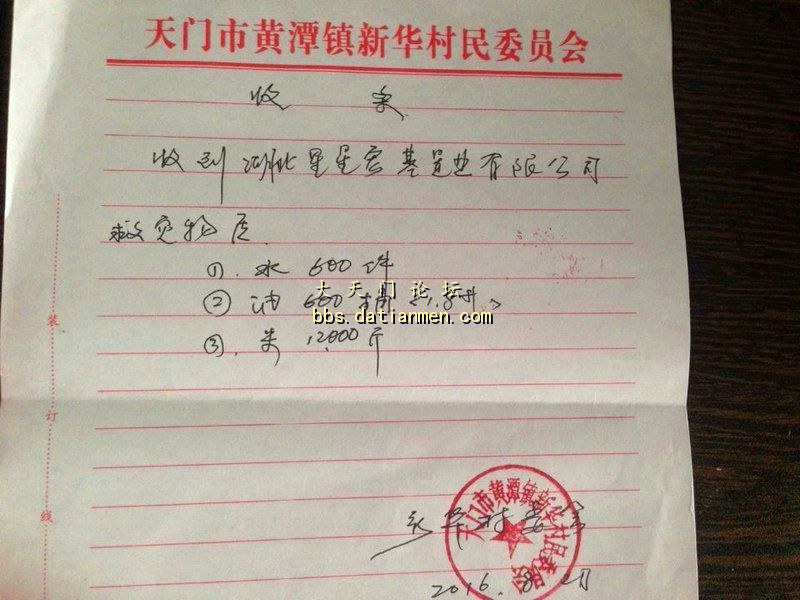 天门市黄潭镇新华村民委员会
收 条
收到湖北星星宫基置业有限公司
救灾物质
①. 水 600件
大天门论坛
② 油 600桶<1.8升>
bbs.datianmen.com
③. 米 12000斤
装
订
线
天门市黄潭镇新华村民委员会
新华村委会
2016.8.